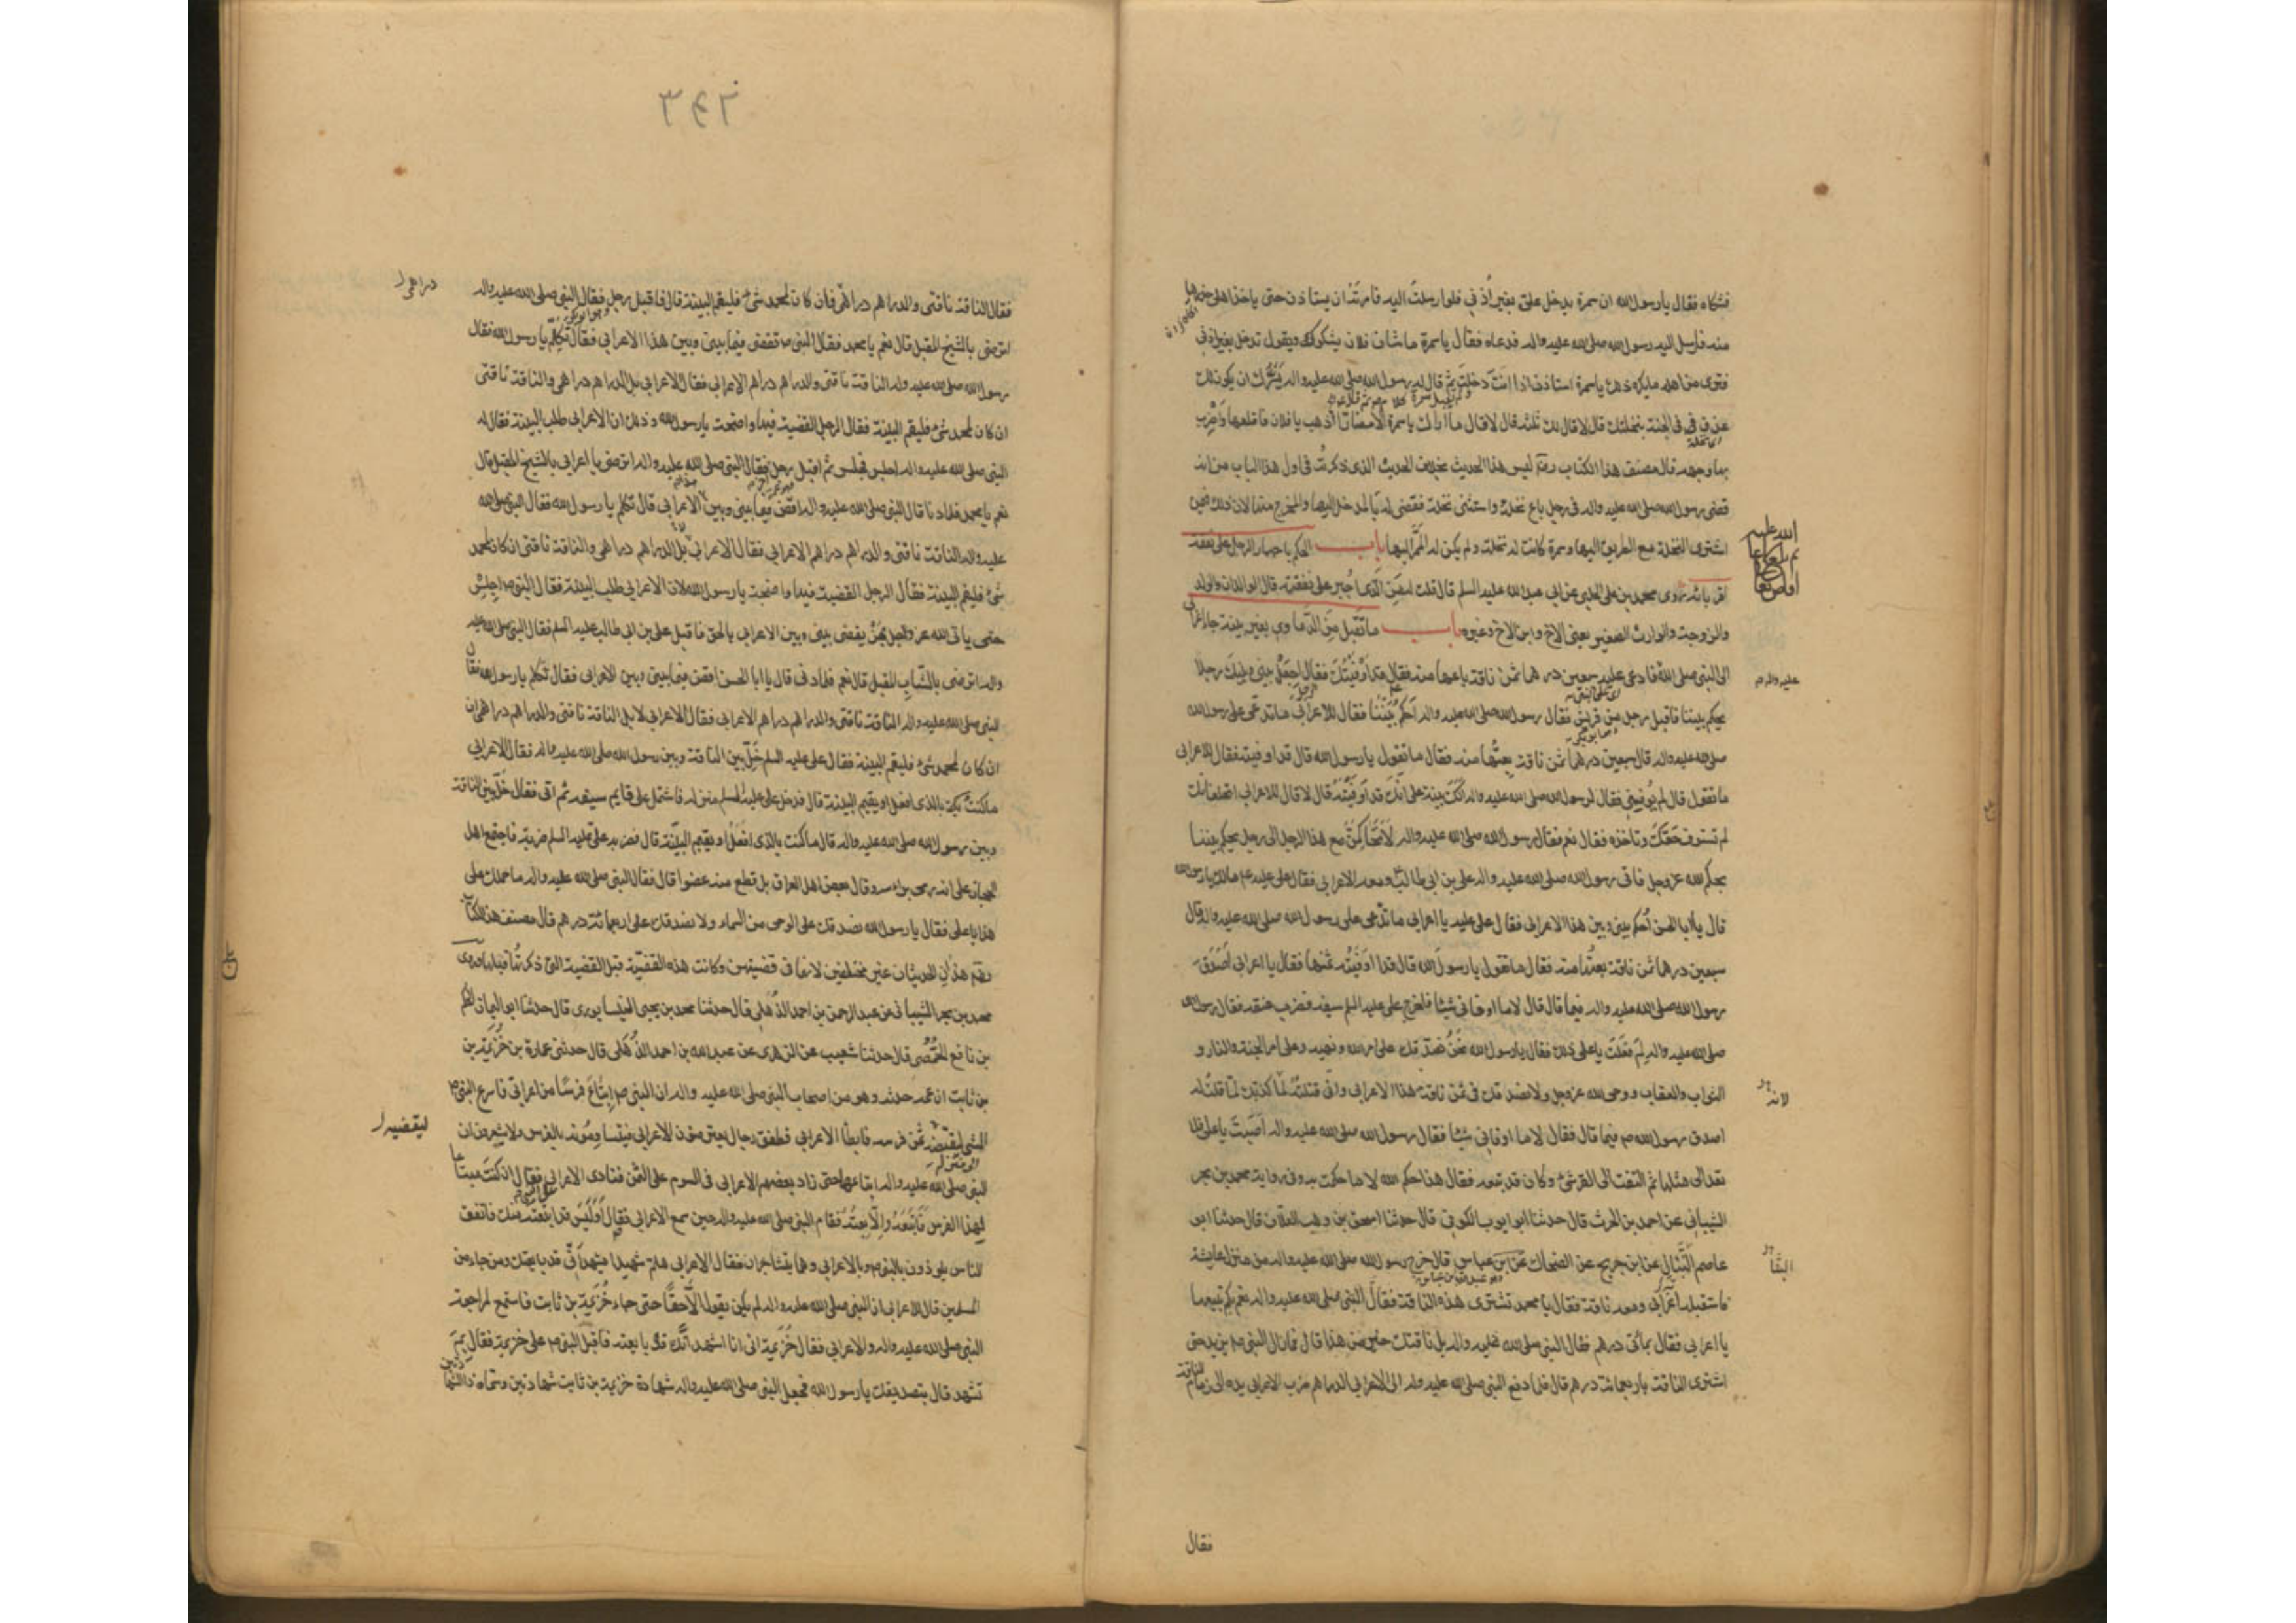 فشكاه فقال يا رسول الله ان سمرة يدخل علىّ بغير اذنى فلو ارسلت اليه فامرته ان يستاذن حتى ياخذ اهلى حذرها
منه فارسل اليه رسول الله صلى الله عليه واله فدعاه فقال يا سمرة ما شان فلان يشكوك ويقول تدخل بغير اذنى
فترى من اهله ما يكره ذلك يا سمرة استاذن اذا انت دخلت ثم قال له رسول الله صلى الله عليه واله يسرّك ان يكون لك
عذق فى الجنة بنخلتك قال لا قال لك ثلثة قال لا قال ما أراك يا سمرة الا مضارّا اذهب يا فلان فاقلعها واضرب
بها وجهه قال مصنف هذا الكتاب رحمه ليس هذا الحديث بخلاف الحديث الذى ذكرته فى اول هذا الباب من انه
قضى رسول الله صلى الله عليه واله فى رجل باع نخلة واستثنى نخلة فقضى له بالمدخل اليها والمخرج منها لان ذلك فيمن
اشترى النخلة مع الطريق اليها وسمرة كانت له نخلة ولم يكن له الممرّ اليها باب الحكم باجبار الرجل على نفقة
اقربائه روى محمد بن على الحلبى عن ابى عبد الله عليه السلم قال قلت له من الذى اجبر على نفقته قال الوالدان والولد
والزوجة والوارث الصغير يعنى الاخ وابن الاخ وغيره باب ما يقبل من الدعاوى بغير بينة جاء اعرابى
الى النبى صلى الله فادعى عليه سبعين درهما ثمن ناقة باعها منه فقال قد اوفيتك فقال اجعل بينى وبينك رجلا
يحكم بيننا فاقبل رجل من قريش فقال رسول الله صلى الله عليه واله احكم بيننا فقال للاعرابى ما تدعى على رسول الله
صلى الله عليه واله قال سبعين درهما ثمن ناقة بعتها منه فقال ما تقول يا رسول الله قال قد اوفيته فقال للاعرابى
ما تقول قال لم يوفينى فقال لرسول الله صلى الله عليه واله الك بينة على انك قد اوفيته قال لا قال للاعرابى اتحلف انك
لم تستوف حقك وتاخذه فقال نعم فقال رسول الله صلى الله عليه واله لاتحاكمنّ مع هذا الرجل الى رجل يحكم بيننا
بحكم الله عز وجل فاتى رسول الله صلى الله عليه واله على بن ابى طالب ومعه الاعرابى فقال على عليه مالك يا رسول الله
قال يا ابا الحسن احكم بينى وبين هذا الاعرابى فقال على عليه يا اعرابى ما تدعى على رسول الله صلى الله عليه واله قال
سبعين درهما ثمن ناقة بعتها منه فقال ما تقول يا رسول الله قال قد اوفيته ثمنها فقال يا اعرابى اصدق
رسول الله صلى الله عليه واله فيما قال قال لا ما اوفانى شيئا فاخرج على عليه السلم سيفه فضرب عنقه فقال رسول الله
صلى الله عليه واله لم فعلت يا على ذلك فقال يا رسول الله نحن نصدقك على امر الله ونهيه وعلى امر الجنة والنار و
الثواب والعقاب ووحى الله عز وجل ولا نصدقك فى ثمن ناقة هذا الاعرابى وانى قتلته لما كذبك لما قلت له
اصدق رسول الله ص فيما قال فقال لا ما اوفانى شيئا فقال رسول الله صلى الله عليه واله اصبت يا على فلا
تعد الى مثلها ثم التفت الى القرشى وكان قد تبعه فقال هذا حكم الله لا ما حكمت به وفى رواية محمد بن بحر
الشيبانى عن احمد بن الحرث قال حدثنا ابو ايوب الكوفى قال حدثنا اسحق بن وهب العلاف قال حدثنا ابو
عاصم النبال عن ابن جريج عن الضحاك عن ابن عباس قال خرج رسول الله صلى الله عليه واله من منزل عايشة
فاستقبله اعرابى ومعه ناقة فقال يا محمد تشترى هذه الناقة فقال النبى صلى الله عليه واله نعم بكم تبيعها
يا اعرابى فقال بمائتى درهم فقال النبى صلى الله عليه واله بل ناقتك خير من هذا قال فما زال النبى ص يزيد حتى
اشترى الناقة باربعمائة درهم قال فلما دفع النبى صلى الله عليه واله الى الاعرابى الدراهم ضرب الاعرابى يده الى زمام الناقة
فقال
٣٤٢
فقال الناقة ناقتى والدراهم دراهمى فان كان لمحمد شئ فليقم البينة قال فاقبل رجل فقال النبى صلى الله عليه واله
دراهمى
اترضى بالشيخ المقبل قال نعم يا محمد فقال النبى ص تقضى فيما بينى وبين هذا الاعرابى فقال تكلم يا رسول الله فقال
رسول الله صلى الله عليه واله الناقة ناقتى والدراهم دراهم الاعرابى فقال الاعرابى بل الدراهم دراهمى والناقة ناقتى
ان كان لمحمد شئ فليقم البينة فقال الرجل القضية فيها واضحة يا رسول الله وذلك ان الاعرابى طلب البينة فقال له
النبى صلى الله عليه واله اجلس فجلس ثم اقبل رجل فقال النبى صلى الله عليه واله اترضى يا اعرابى بالشيخ المقبل قال
نعم يا محمد فلما دنا قال النبى صلى الله عليه واله اقض فيما بينى وبين الاعرابى قال تكلم يا رسول الله فقال النبى صلى الله
عليه واله الناقة ناقتى والدراهم دراهم الاعرابى فقال الاعرابى بل الدراهم دراهمى والناقة ناقتى ان كان لمحمد
شئ فليقم البينة فقال الرجل القضية فيها واضحة يا رسول الله لان الاعرابى طلب البينة فقال النبى ص اجلس
حتى ياتى الله عز وجل بمن يقضى بينى وبين الاعرابى بالحق فاقبل على بن ابى طالب عليه السلم فقال النبى صلى الله عليه
واله اترضى بالشاب المقبل قال نعم فلما دنى قال يا ابا الحسن اقض فيما بينى وبين الاعرابى فقال تكلم يا رسول الله فقال
النبى صلى الله عليه واله الناقة ناقتى والدراهم دراهم الاعرابى فقال الاعرابى لا بل الناقة ناقتى والدراهم دراهمى ان
ان كان لمحمد شئ فليقم البينة فقال على عليه السلم خلّ بين الناقة وبين رسول الله صلى الله عليه واله فقال الاعرابى
ما كنت بالذى افعل او يقيم البينة قال فدخل على عليه السلم منزله فاشتمل على قايم سيفه ثم اتى فقال خلّ بين الناقة
وبين رسول الله صلى الله عليه واله قال ما كنت بالذى افعل او يقيم البينة قال فضربه على عليه السلم ضربة فاجتمع اهل
الحجاز على انه رمى براسه وقال بعض اهل العراق بل قطع منه عضوا قال فقال النبى صلى الله عليه واله ما حملك على
هذا يا على فقال يا رسول الله نصدقك على الوحى من السماء ولا نصدقك على اربعمائة درهم قال مصنف هذا الكتاب
رحمه هذان الحديثان غير مختلفين لانهما فى قضيتين وكانت هذه القضية قبل القضية التى ذكرتها قبلها وروى
محمد بن بحر الشيبانى عن عبد الرحمن بن احمد الذهلى قال حدثنا محمد بن يحيى النيسابورى قال حدثنا ابو اليمان الحكم
بن نافع الحمصى قال حدثنا شعيب عن الزهرى عن عبد الله بن احمد الذهلى قال حدثنى عمارة بن خزيمة بن
بن ثابت ان عمه حدثه وهو من اصحاب النبى صلى الله عليه واله ان النبى ص ابتاع فرسا من اعرابى فاسرع النبى ص
المشى ليقبضه ثمن فرسه فابطا الاعرابى فطفق رجال يعترضون الاعرابى فيتساومونه بالفرس ولا يشعرون ان
ليقضيه
النبى صلى الله عليه واله ابتاعها حتى زاد بعضهم الاعرابى فى السوم على الثمن فنادى الاعرابى فقال ان كنت مبتاعا
لهذا الفرس فابتعه والا بعته فقام النبى صلى الله عليه واله حين سمع الاعرابى فقال اوليس قد ابتعته منك فاتفق
الناس يلوذون بالنبى ص وبالاعرابى وهما يتشاجران فقال الاعرابى هلم شهيدا يشهد انى قد بايعتك ومن جاء من
المسلمين قال للاعرابى ان النبى صلى الله عليه واله لم يكن يقول الا حقا حتى جاء خزيمة بن ثابت فاستمع لمراجعة
النبى صلى الله عليه واله والاعرابى فقال خزيمة انى انا اشهد انك قد بايعته فاقبل النبى ص على خزيمة فقال بم
تشهد قال بتصديقك يا رسول الله فجعل النبى صلى الله عليه واله شهادة خزيمة بن ثابت شهادتين وسماه ذا الشهادتين